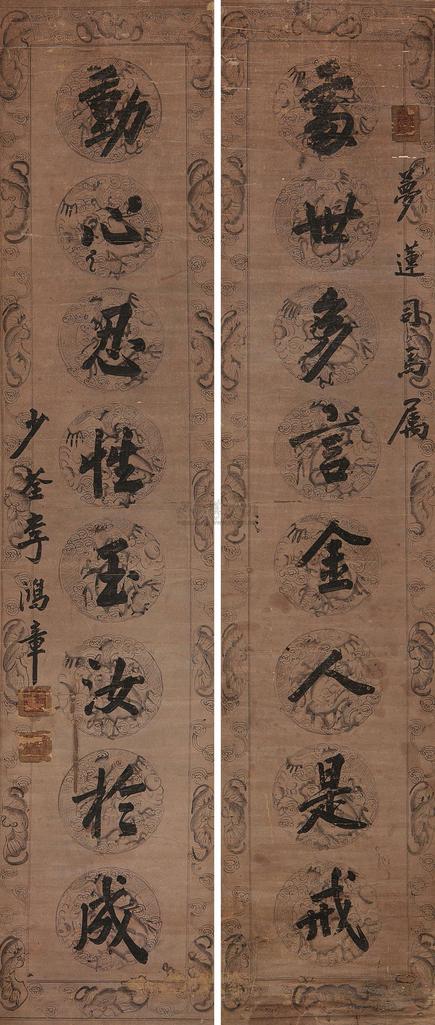 夢蓮司馬属
處世多言金人是戒
動心忍性玉汝於成
少荃李鴻章